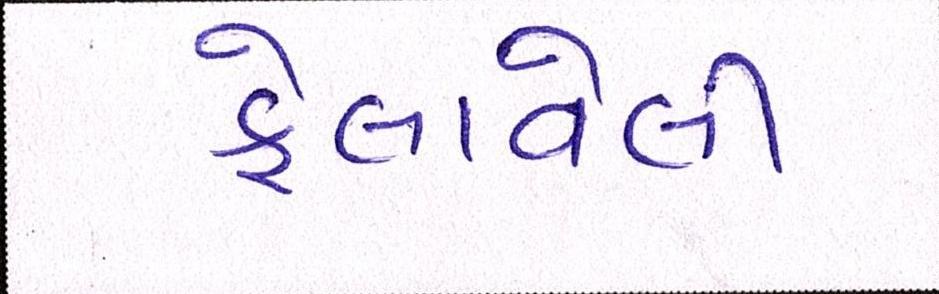 ફેલાવેલી